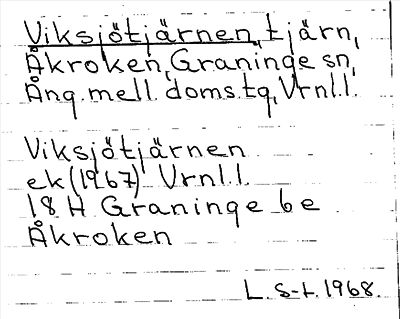 Viksjötjärnen, tjärn,
Åkroken, Graninge sn,
Ång. mell. doms.tg, Vrnl.l.
Viksjötjärnen
ek (1967) Vrnl.l.
18 H Graninge 6 e
Åkroken
L. S-t. 1968.